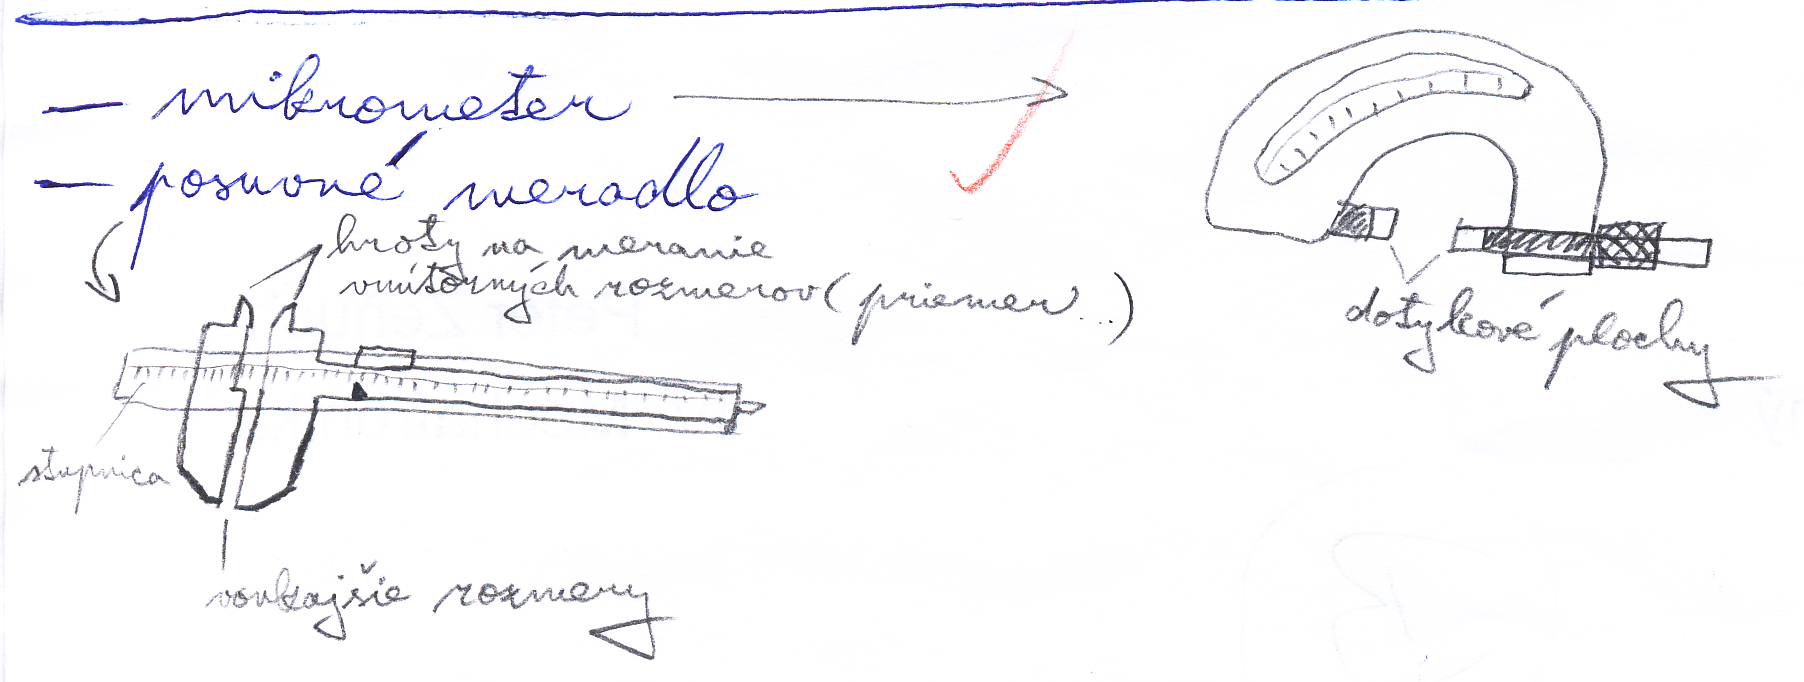 — mikrometer
— posuvné meradlo
hroty na meranie
vnútorných rozmerov (priemer...)
dotykové plochy
stupnica
vonkajšie rozmery